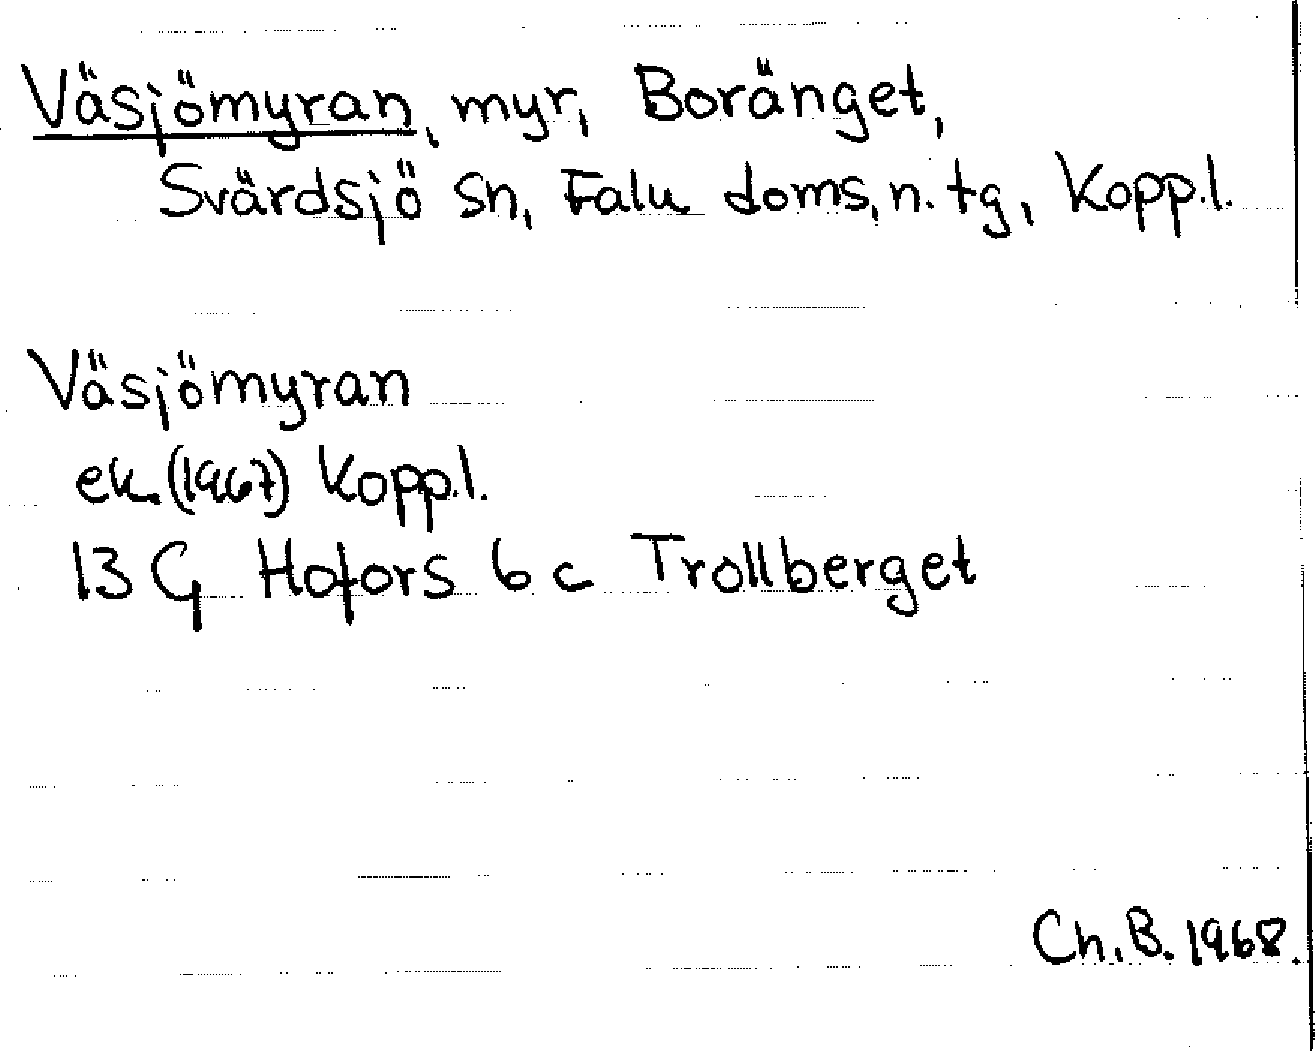 Väsjömyran, myr, Boränget,
Svärdsjö sn, Falu doms, n. tg, Kopp.l.
Väsjömyran
ek. (1967) Kopp.l.
13 G Hofors 6 c Trollberget
Ch. B. 1968.